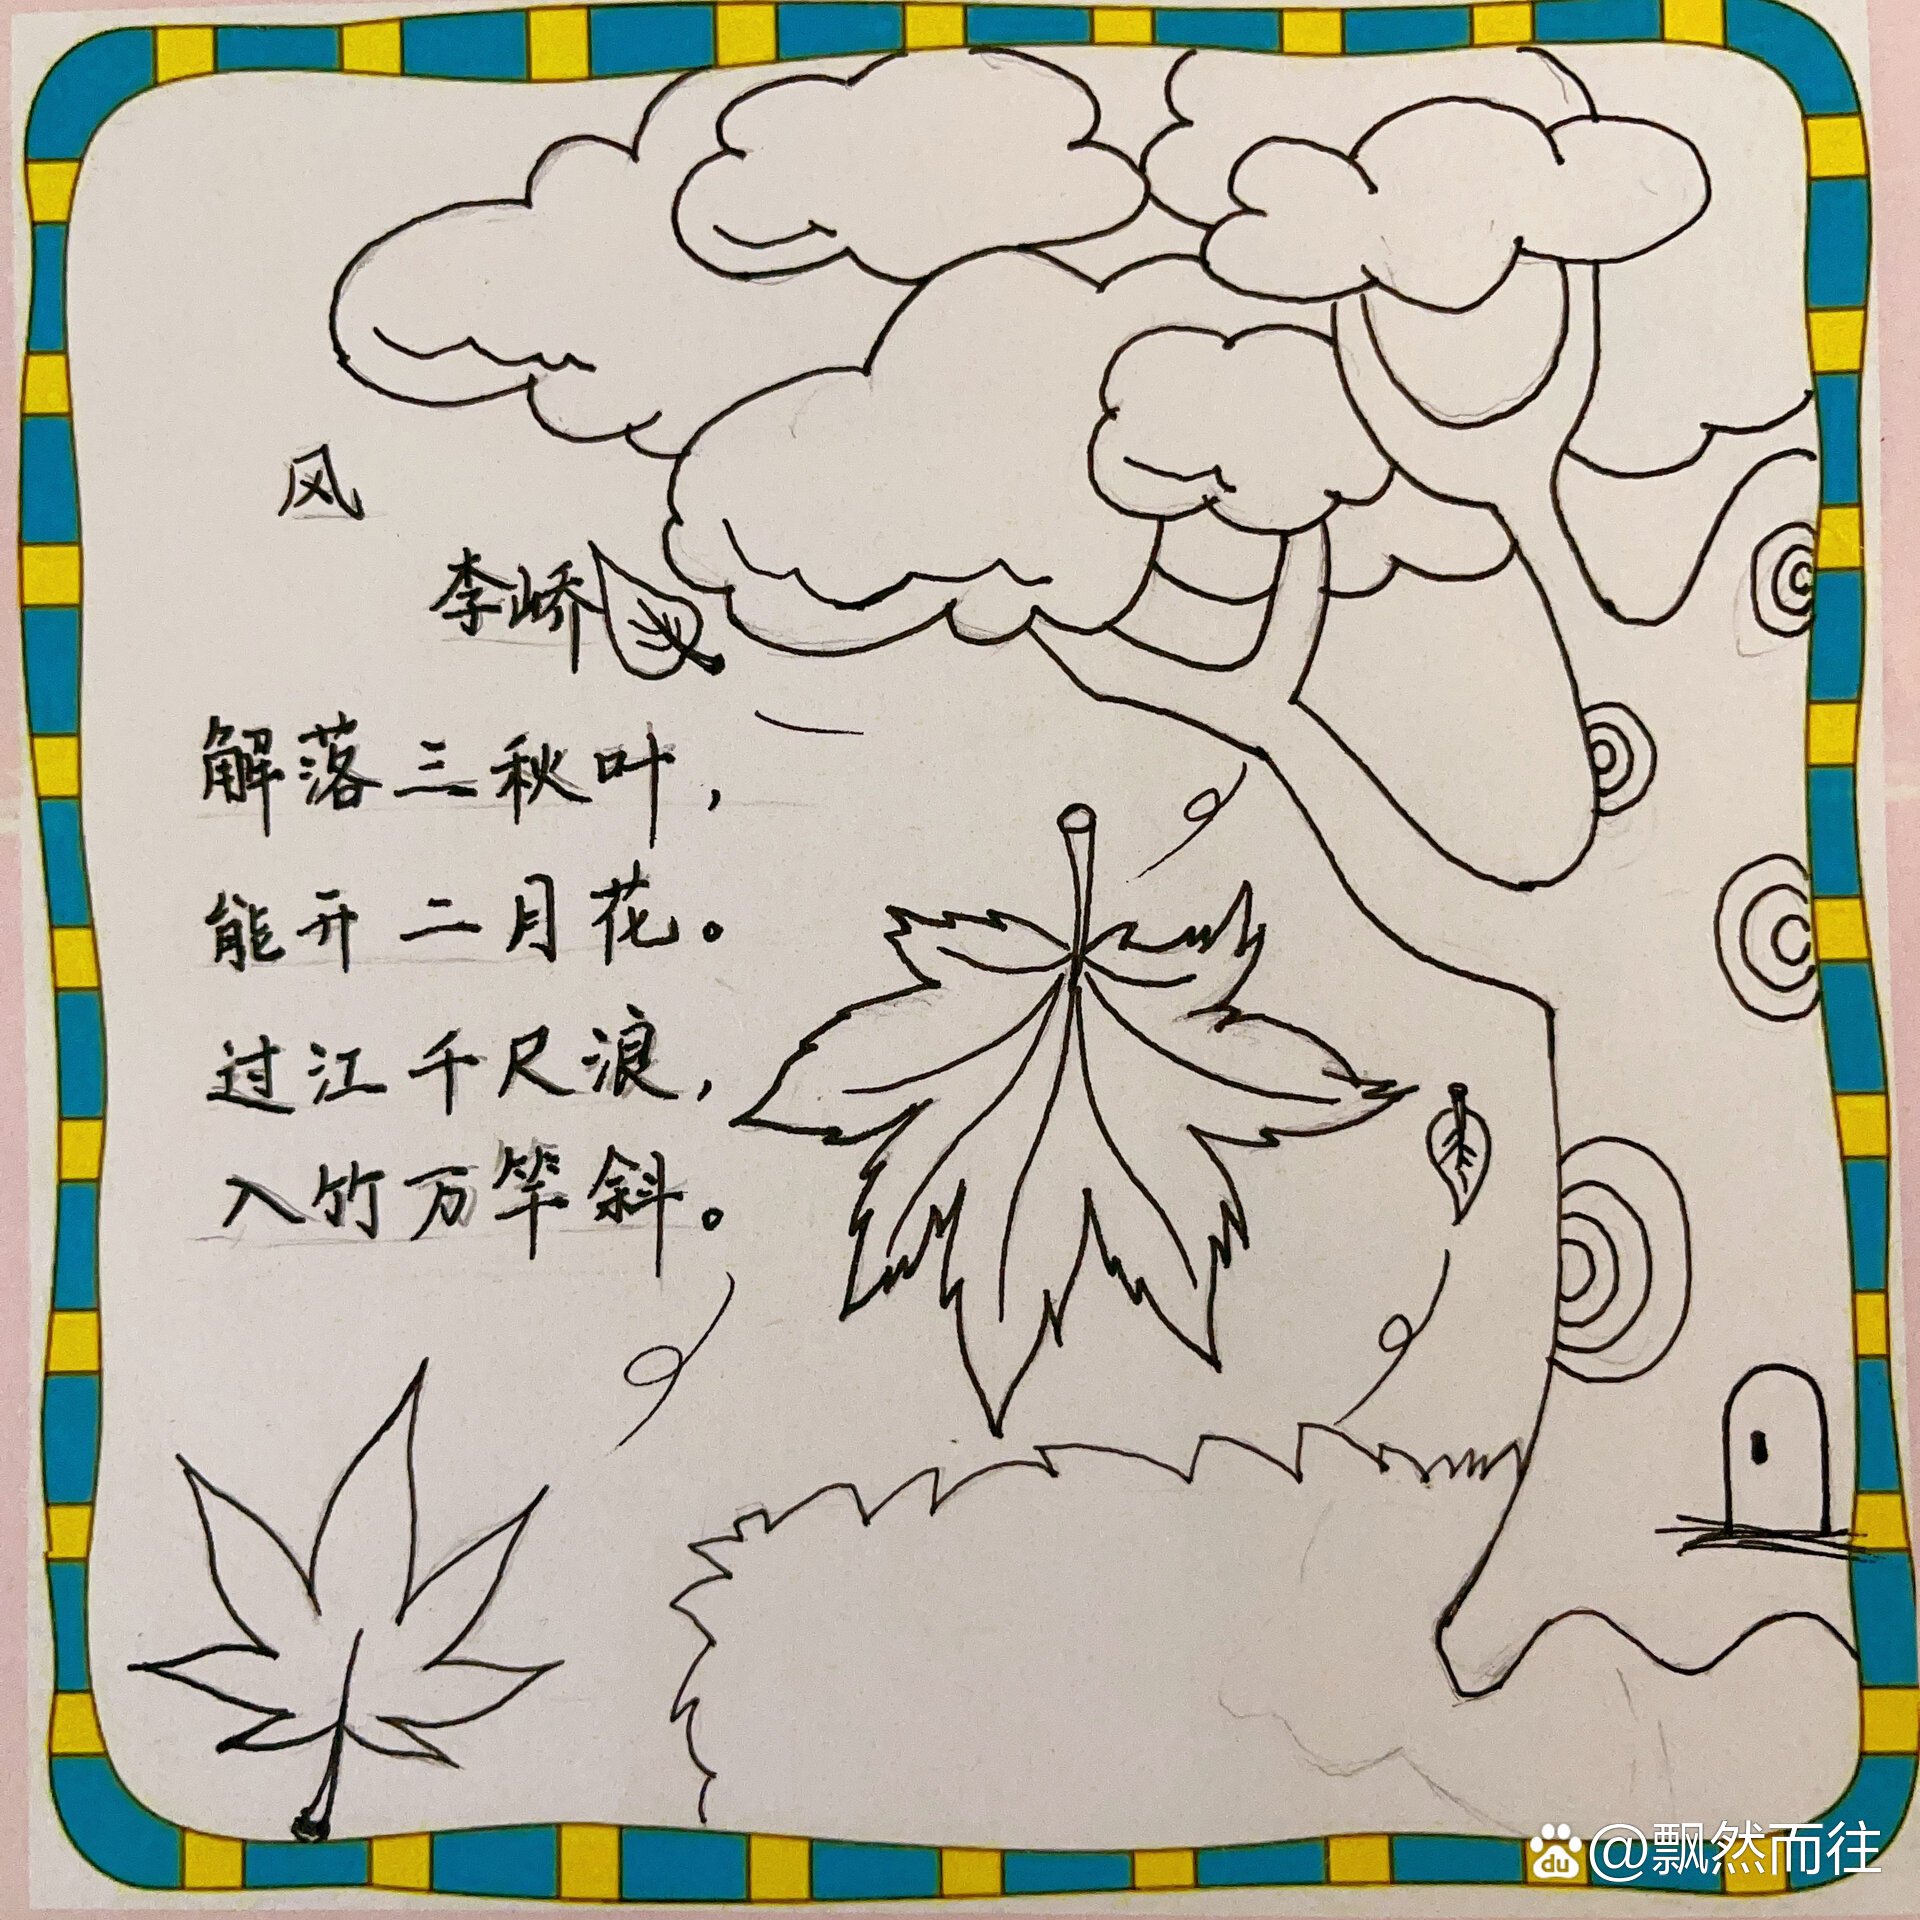 风
李峤
解落三秋叶，
能开二月花。
过江千尺浪，
入竹万竿斜。
du @飘然而往